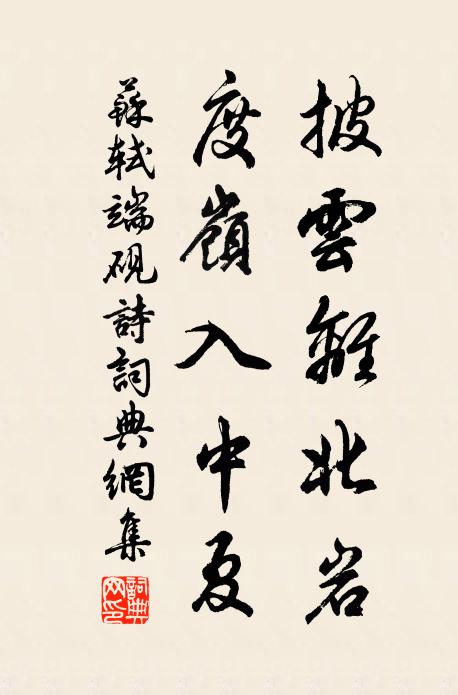 披雲離北岩
度嶺入中夏
蘇軾端硯詩詞典網集
詞典網印